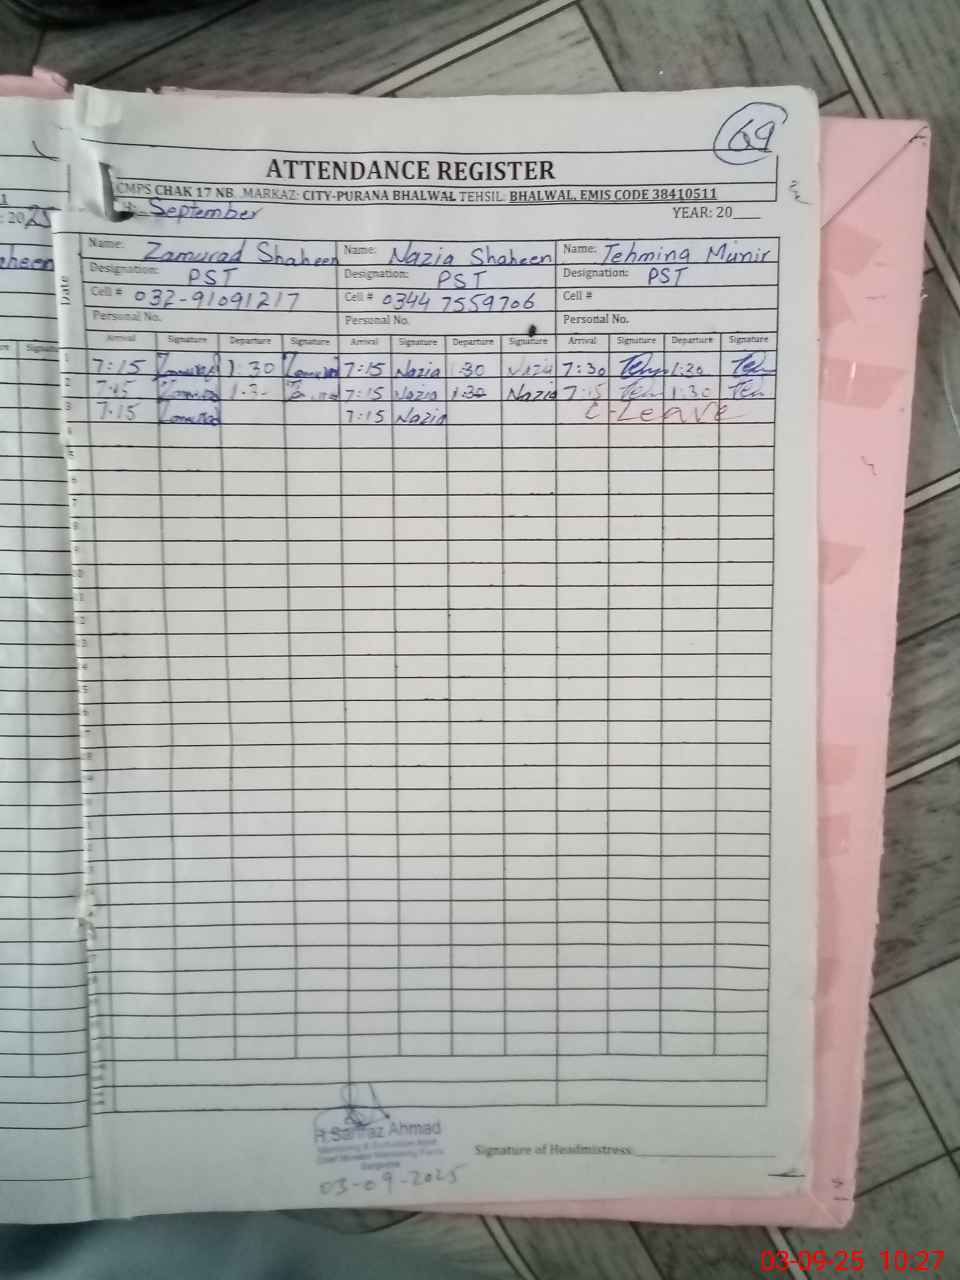 69
ATTENDANCE REGISTER
CMPS CHAK 17 NB MARKAZ: CITY-PURANA BHALWAL TEHSIL: BHALWAL, EMIS CODE 38410511
: 2025 September YEAR: 20
Name: Zamurad Shaheen Name: Nazia Shaheen Name: Tehmina Munir
Designation: PST Designation: PST Designation: PST
Cell # 032-91091217 Cell # 0344 7559706 Cell #
Personal No. Personal No. Personal No.
Date Arrival Signature Departure Signature Arrival Signature Departure Signature Arrival Signature Departure Signature
1 7:15 Zamurad 1:30 Zamurad 7:15 Nazia 1:30 Nazia 7:30 Teh 1:30 Teh
2 7:15 Zamurad 1:3 7:15 Nazia 1:30 Nazia 7:15 Teh 1:30 Teh
3 7:15 Zamurad 7:15 Nazia C-Leave
4
5
6
7
8
9
10
11
12
13
14
15
16
17
18
R.Sarfraz Ahmad
Signature of Headmistress:
03-09-2025
03-09-25 10:27